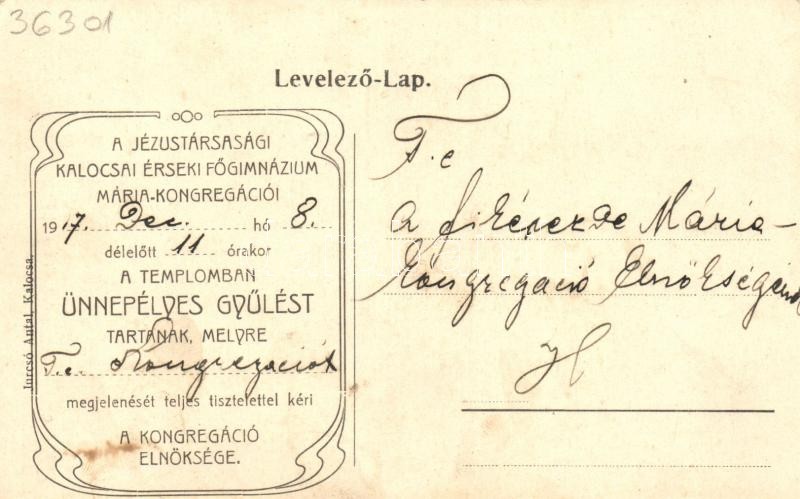 36301
Levelező-Lap.
A JÉZUSTÁRSASÁGI
KALOCSAI ÉRSEKI FŐGIMNÁZIUM
MÁRIA-KONGREGÁCIÓI
1917. Dec. hó 8.
délelőtt 11 órakor
A TEMPLOMBAN
ÜNNEPÉLYES GYŰLÉST
TARTANAK, MELYRE
T. c. Kongregációt
megjelenését teljes tisztelettel kéri
A KONGREGÁCIÓ
ELNÖKSÉGE.
Jurcsó Antal, Kalocsa.
T. c
A fiképezde Mária-
Kongregáció Elnökségének
H